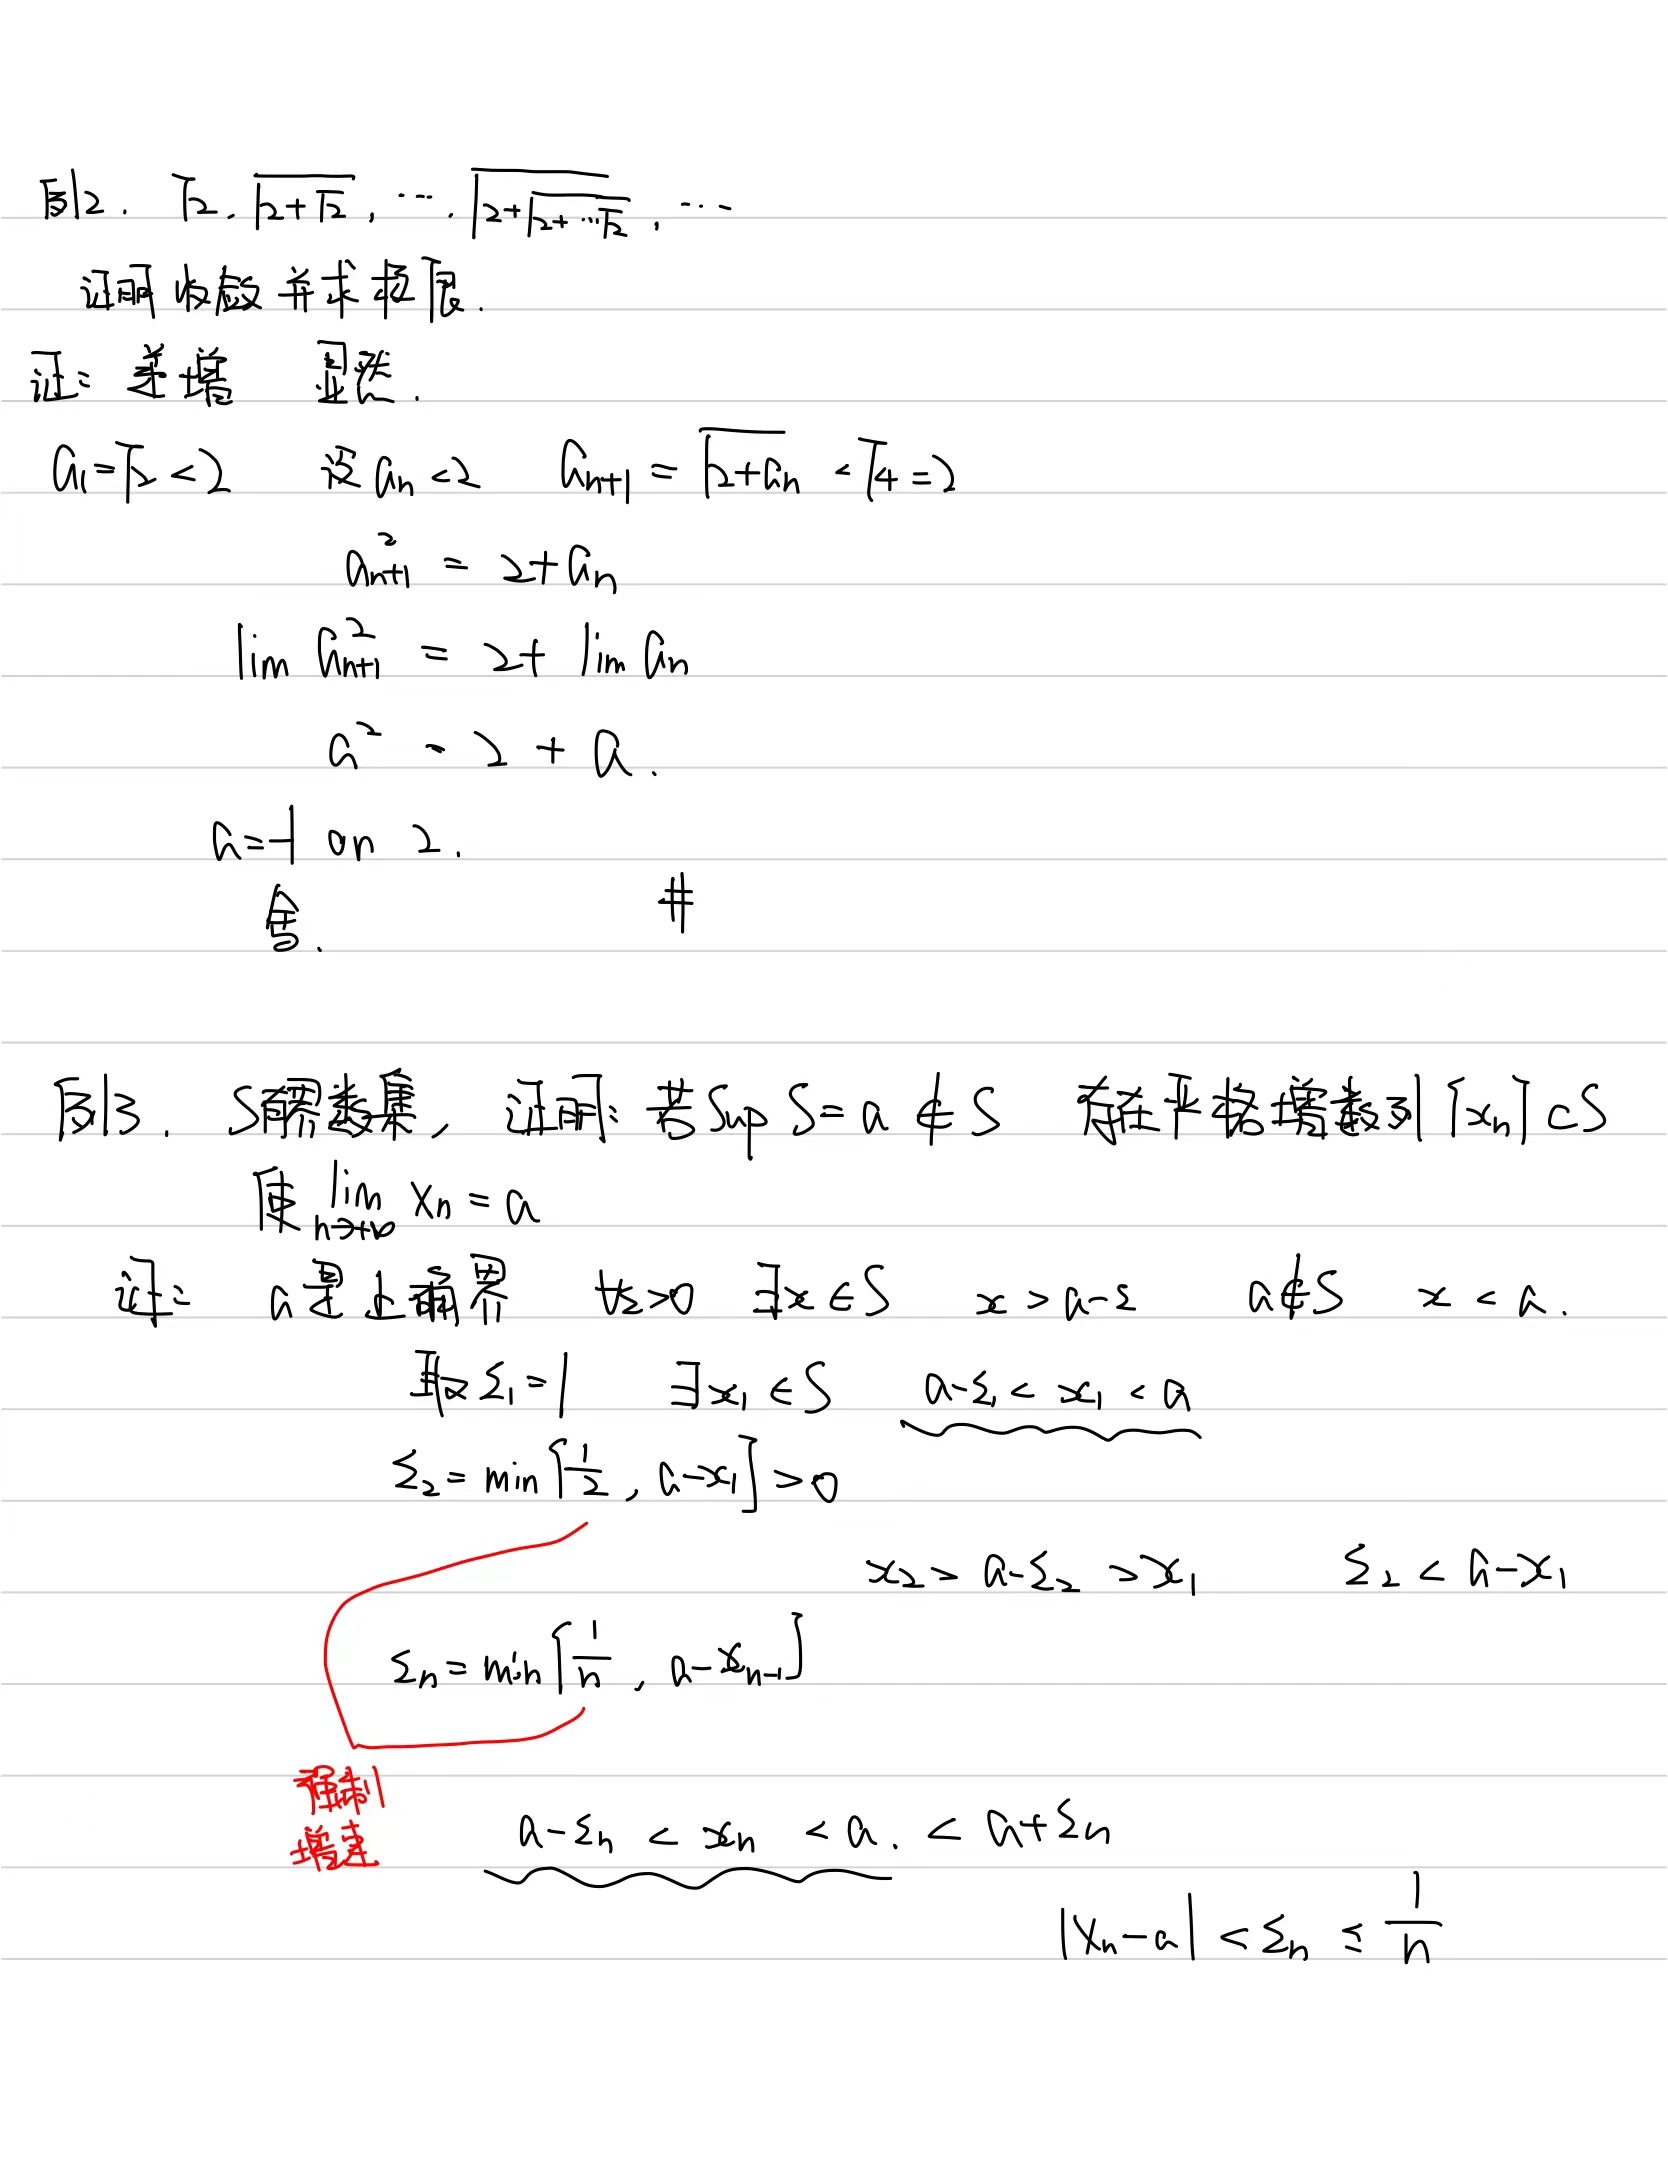 例2. √2, √(2+√2), ⋯, √(2+√(2+⋯√2)), ⋯
证明收敛并求极限.
证: 递增 显然.
a₁=√2<2 设aₙ<2 aₙ₊₁=√(2+aₙ)<√4=2
aₙ₊₁²=2+aₙ
lim aₙ₊₁²=2+lim aₙ
a²=2+a.
a=-1 or 2.
舍. #
例3. S有界数集, 证明: 若Sup S=a∉S 存在严格增数列{xₙ}⊂S
使 lim n→+∞ xₙ=a
证: a是上确界 ∀ε>0 ∃x∈S x>a-ε a∉S x<a.
取ε₁=1 ∃x₁∈S a-ε₁<x₁<a
ε₂=min{1/2, a-x₁}>0
x₂>a-ε₂>x₁ ε₂<a-x₁
εₙ=min{1/n, a-xₙ₋₁}
强制
增速
a-εₙ<xₙ<a.<a+εₙ
|xₙ-a|<εₙ≤1/n